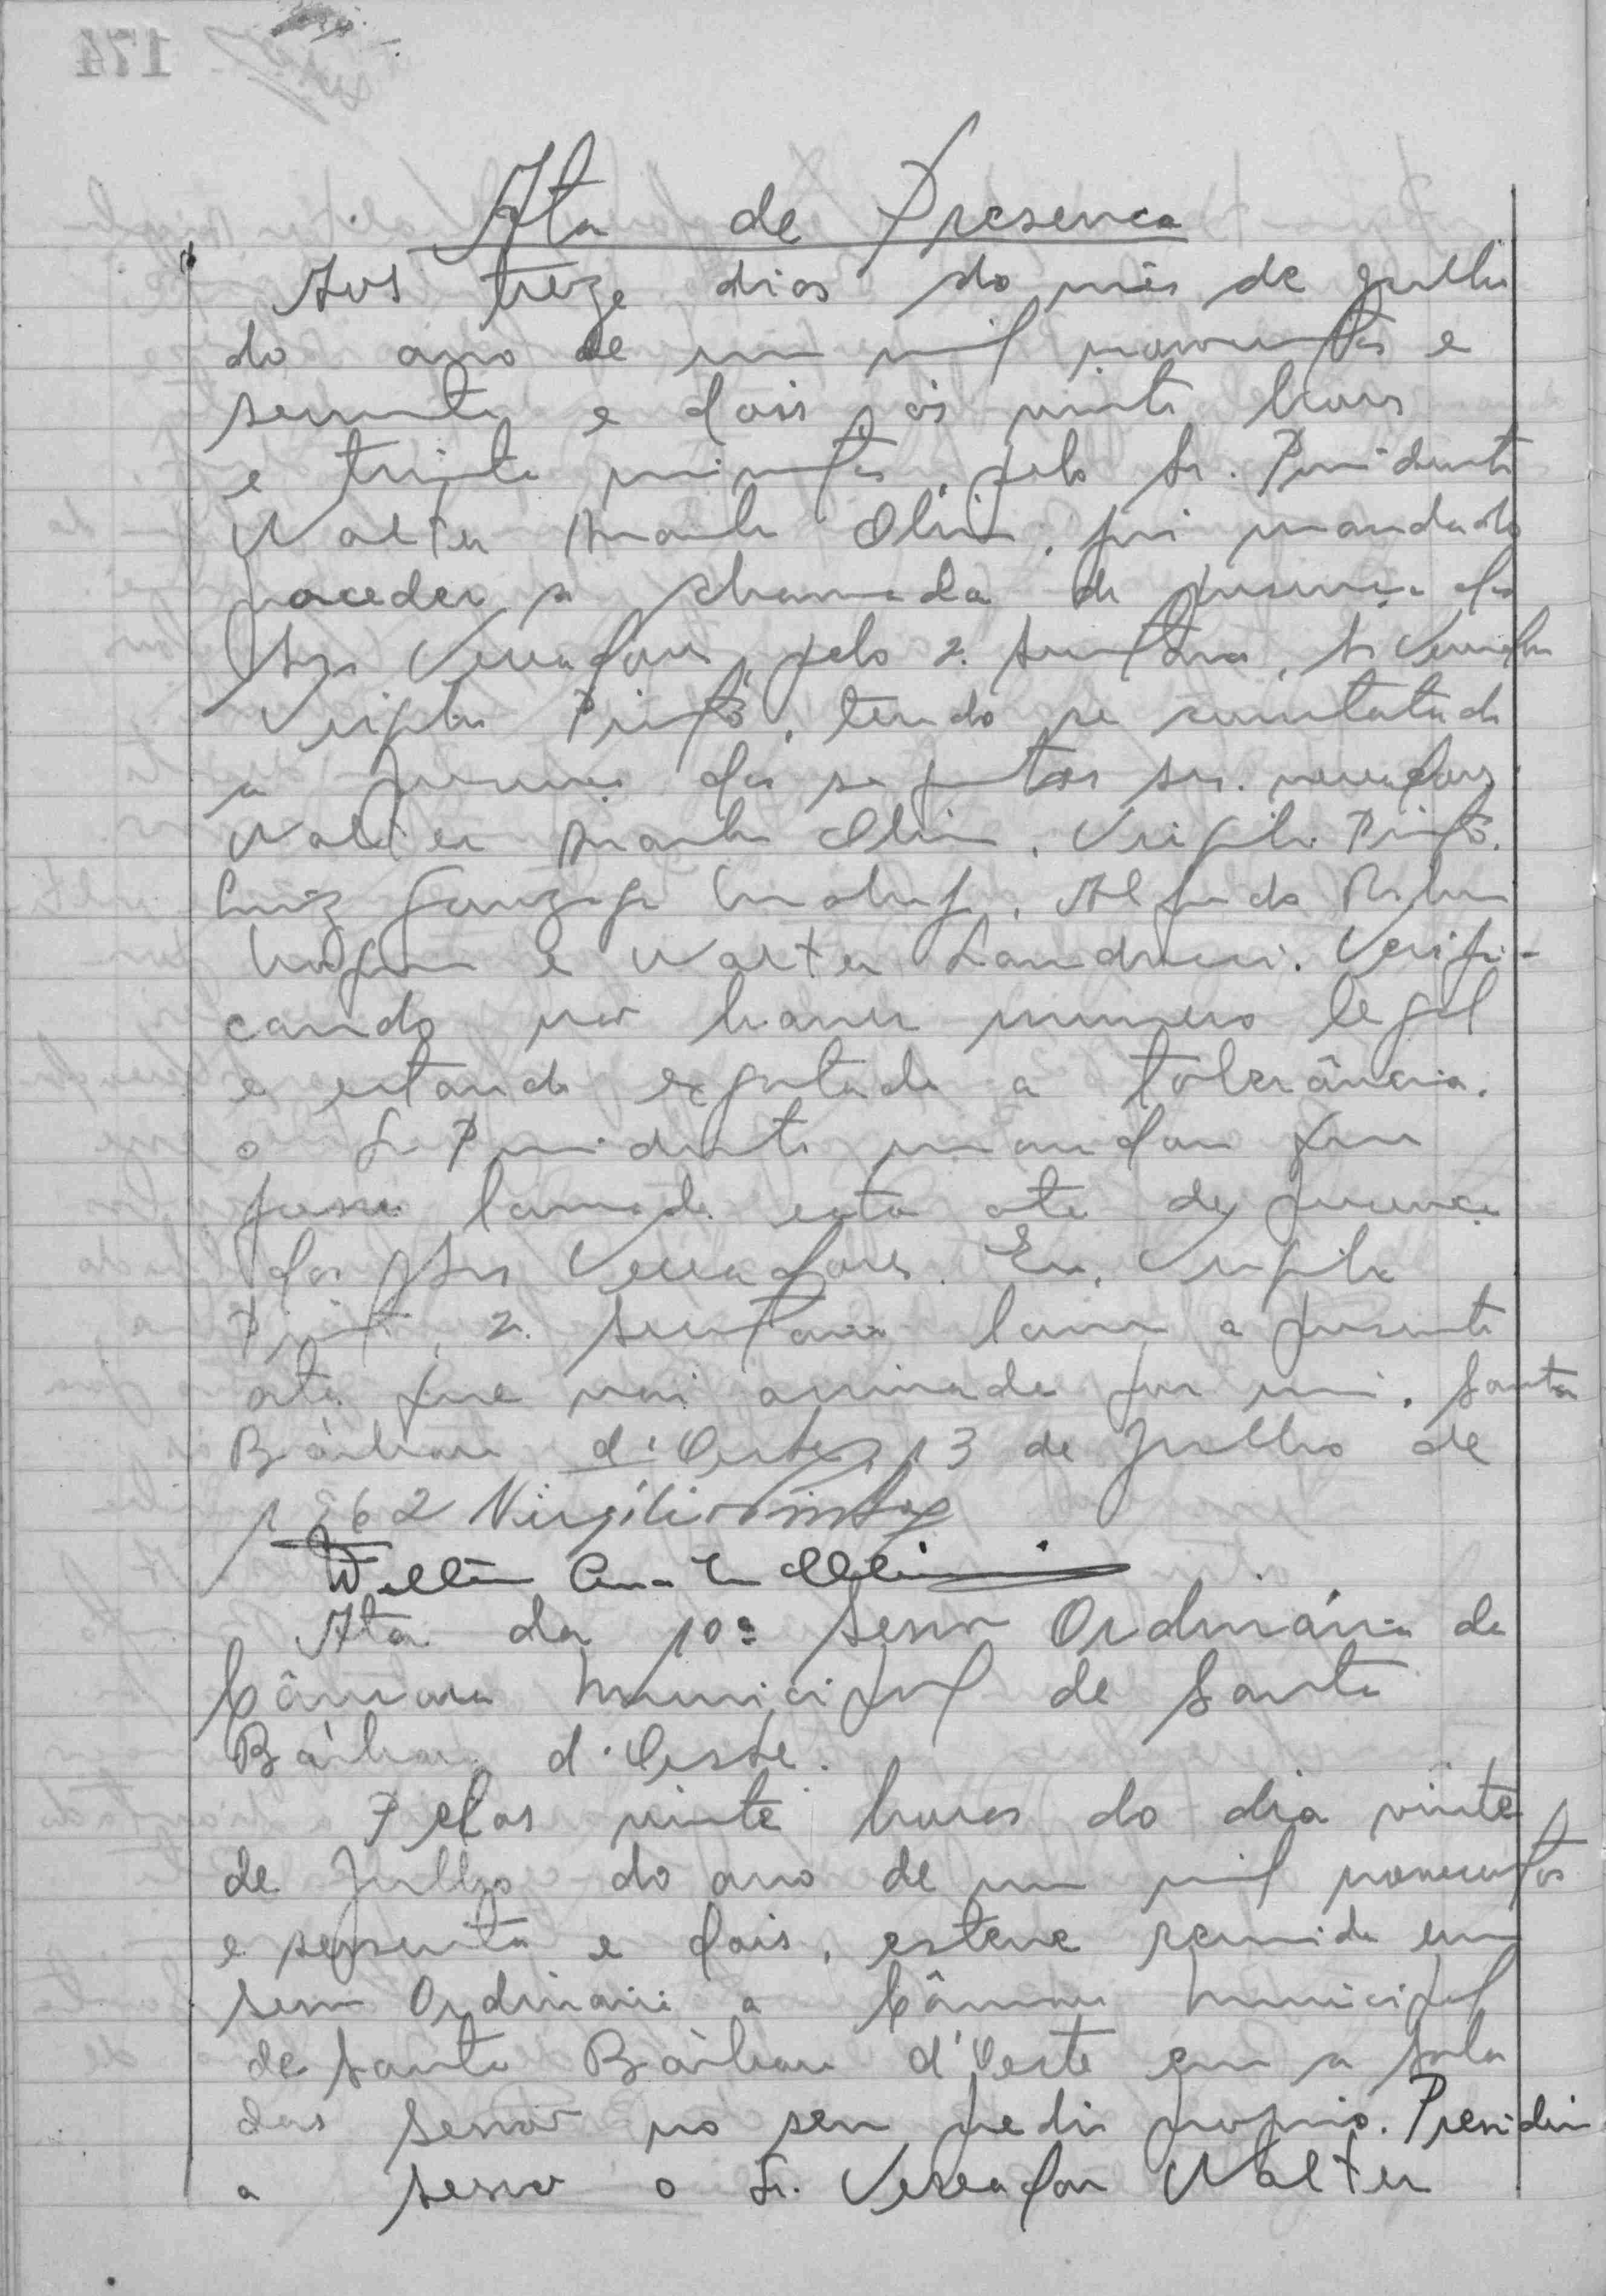 Ata de Presença
Aos treze dias do mês de julho
do ano de um mil novecentos e
sessenta e dois, às vinte horas
e trinta minutos, pelo Sr. Presidente
Walter Olin, foi mandado
proceder a chamada de presença dos
Srs Vereadores, pelo 2. Secretário, Sr Vereador
Virgilio Pinto, tendo se constatado
a presença dos seguintes srs. vereadores
Walter Olin, Virgilio Pinto,
Luiz Gonzaga, Alfredo
e Walter Landucci. Verifi-
cando não haver numero legal
e estando esgotada a tolerância,
o Sr Presidente mandou que
fosse lavrada esta ata de presença
dos Srs Vereadores. Eu, Virgilio
Pinto, 2. Secretario lavrei a presente
ata que vai assinada por mim. Santa
Bárbara d'Oeste, 13 de Julho de
1962 Virgílio Pinto
Walter
Ata da 10ª Sessão Ordinária da
Câmara Municipal de Santa
Bárbara d'Oeste.
Pelas vinte horas do dia vinte
de Julho do ano de um mil novecentos
e sessenta e dois, esteve reunida em
sessão Ordinária a Câmara Municipal
de Santa Bárbara d'Oeste em a sala
das sessões no seu predio proprio. Presidiu
a sessão o Sr. Vereador Walter